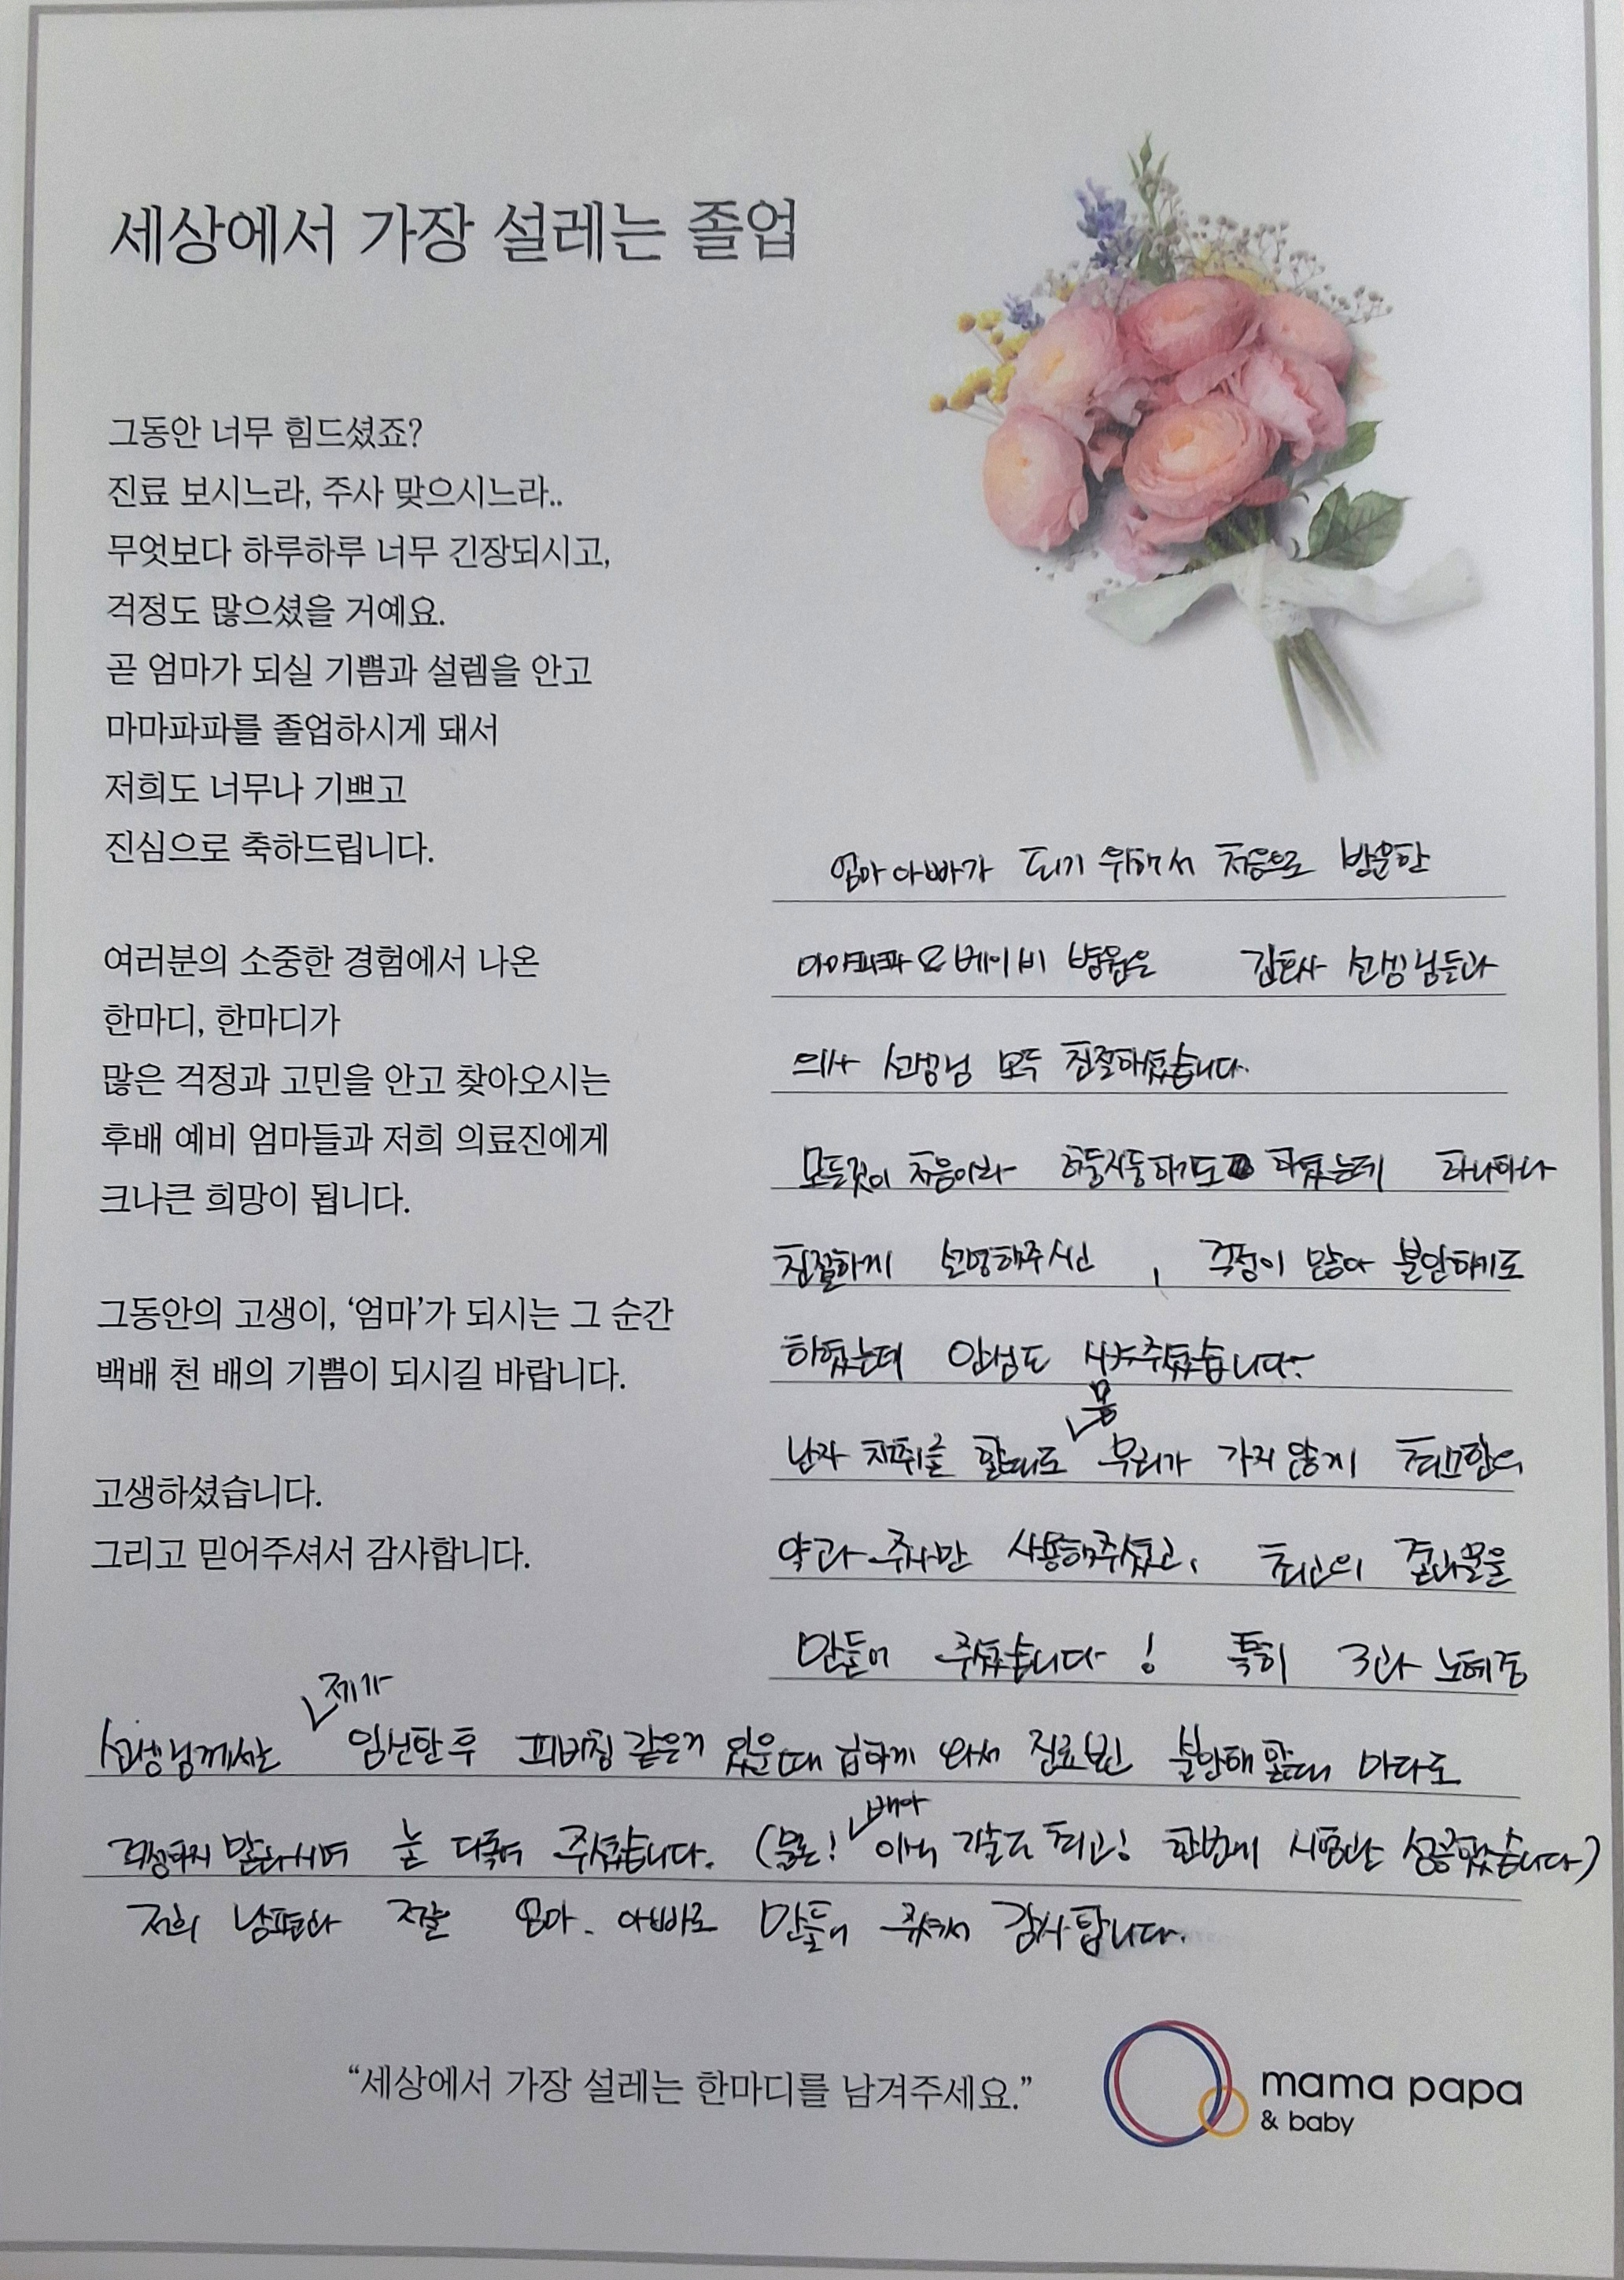 세상에서 가장 설레는 졸업
그동안 너무 힘드셨죠?
진료 보시느라, 주사 맞으시느라..
무엇보다 하루하루 너무 긴장되시고,
걱정도 많으셨을 거예요.
곧 엄마가 되실 기쁨과 설렘을 안고
마마파파를 졸업하시게 돼서
저희도 너무나 기쁘고
진심으로 축하드립니다.
여러분의 소중한 경험에서 나온
한마디, 한마디가
많은 걱정과 고민을 안고 찾아오시는
후배 예비 엄마들과 저희 의료진에게
크나큰 희망이 됩니다.
그동안의 고생이, ‘엄마’가 되시는 그 순간
백배 천 배의 기쁨이 되시길 바랍니다.
고생하셨습니다.
그리고 믿어주셔서 감사합니다.
엄마아빠가 되기 위해서 처음으로 방문한
마마파파&베이비 병원은 간호사 선생님들과
의사 선생님 모두 친절하셨습니다.
모든것이 처음이라 허둥지둥하기도 하였는데 하나하나
친절하게 설명해주시신, 걱정이 많아 불안하기도
하였는데 안심도 시켜주셨습니다.
난자 채취를 할때도 몸 무리가 가지 않게 최소한의
약과 주사만 사용해주셨고, 최고의 결과물을
만들어 주셨습니다! 특히 3과 노혜중
선생님께서는 제가 임신한 후 피비침 같은거 있을때 급하게 와서 진료본 불안해 할때 마다도
걱정하지 말라시며 눈 다독여 주셨습니다. (물론! 배아 이식 기술도 최고! 한번에 시험관 성공했습니다)
저희 남편과 저를 엄마. 아빠로 만들어 주셔서 감사합니다.
“세상에서 가장 설레는 한마디를 남겨주세요.”
mama papa
& baby